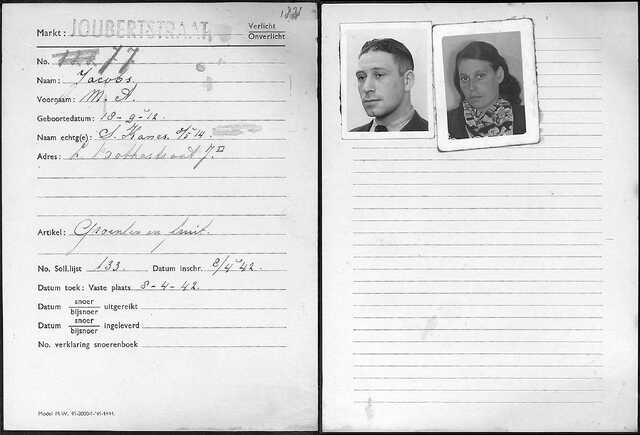 1221
Markt: JOUBERTSTRAAT, Verlicht Onverlicht
No. 77
Naam: Jacobs
Voornaam: M. A.
Geboortedatum: 18-9-'12.
Naam echtg(e): S. Kanes 14.
Adres: 7 II
Artikel: Groenten en fruit.
No. Soll.lijst 133. Datum inschr. 8/4 '42.
Datum toek: Vaste plaats 8-4-42.
Datum snoer bijsnoer uitgereikt
Datum snoer bijsnoer ingeleverd
No. verklaring snoerenboek
Model M.W.